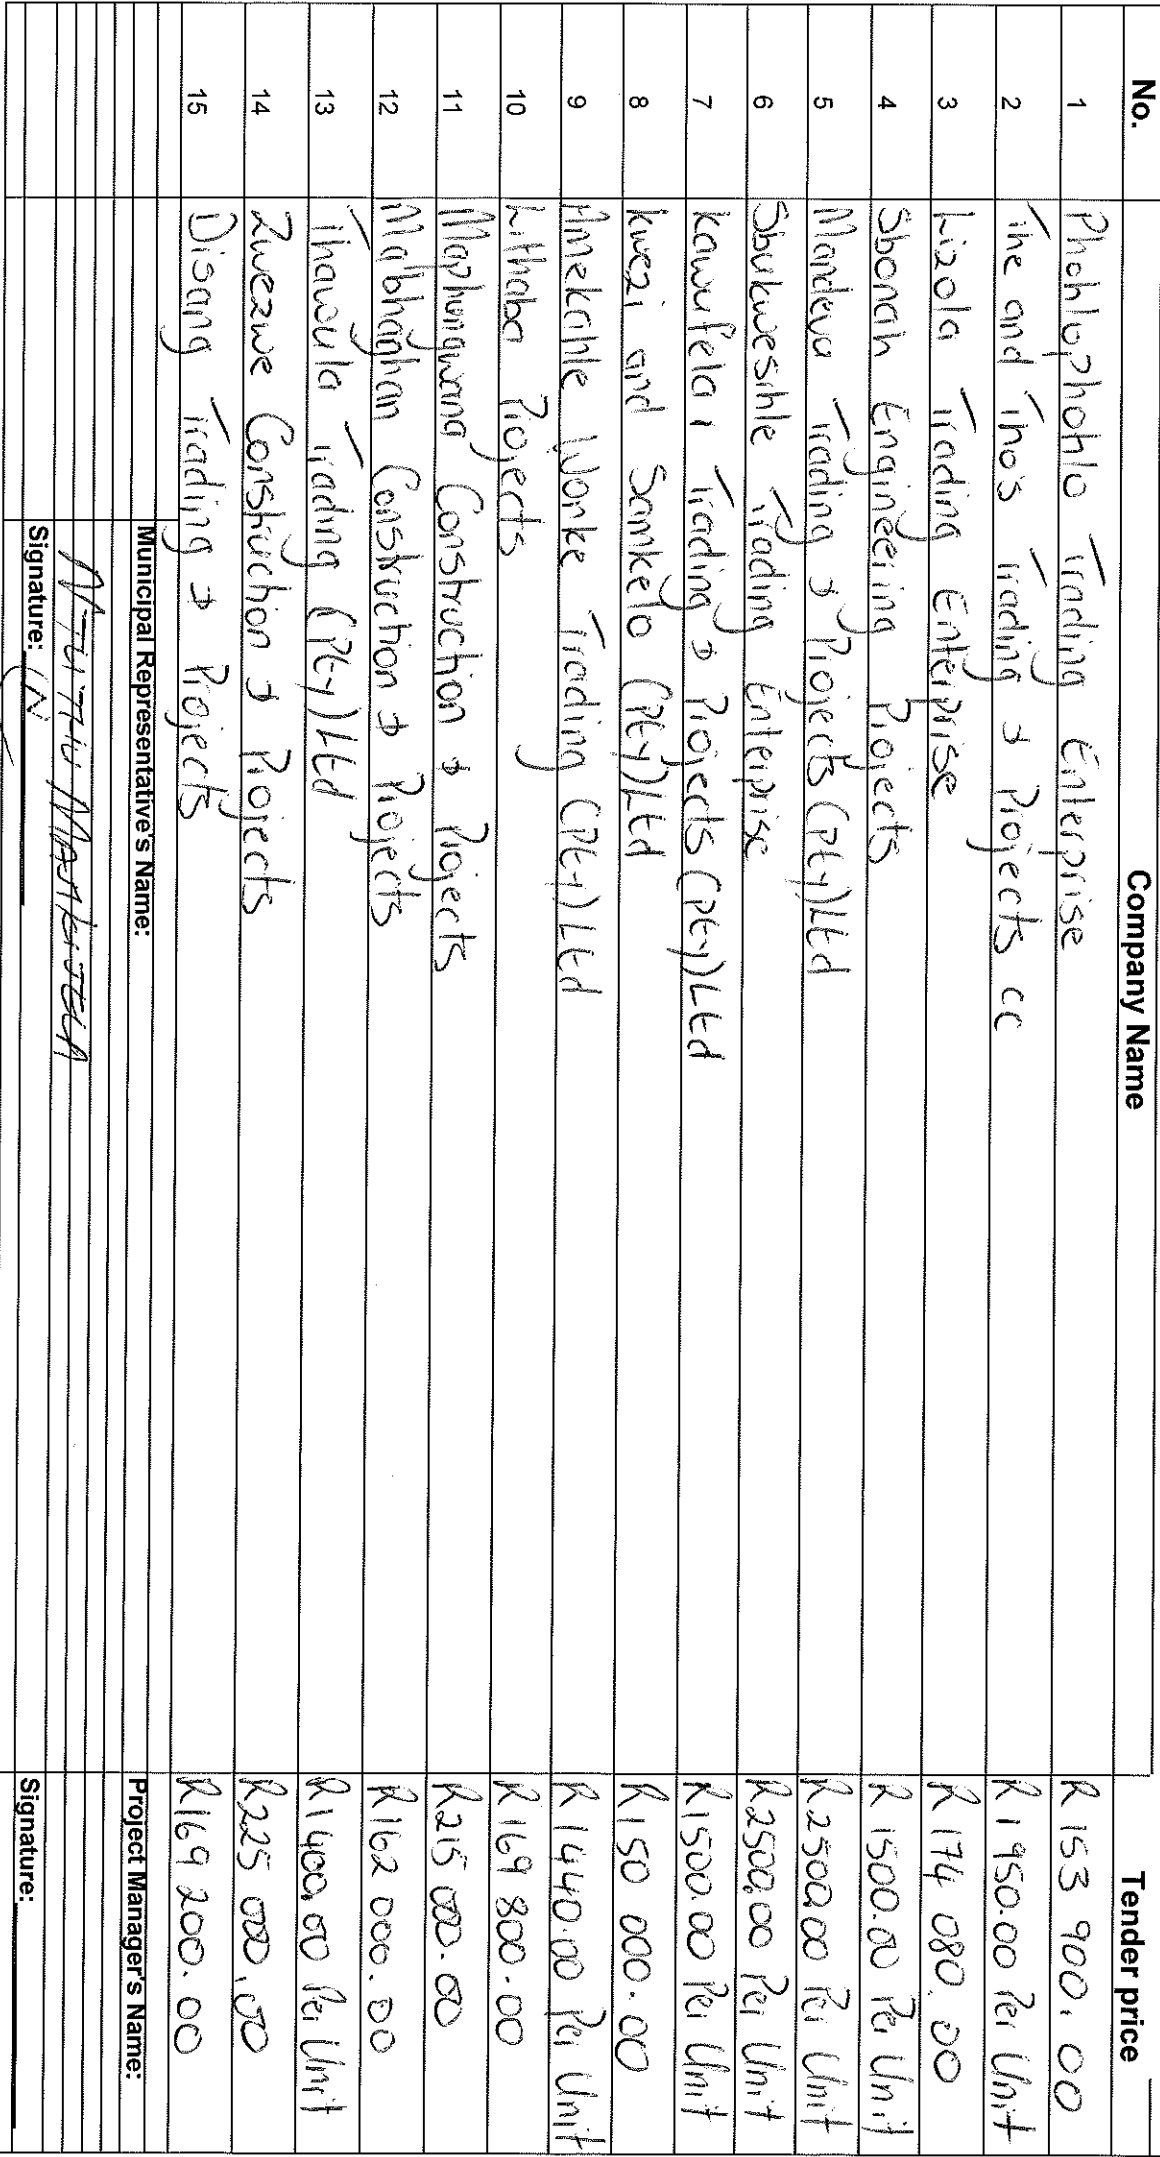 No. Company Name Tender price
1 Phohlophohlo Trading Enterprise R 153 900.00
2 The and Tho's Trading & Projects cc R 1950.00 Per Unit
3 Lizola Trading Enterprise R 174 080.00
4 Sbonah Engineering Projects R 1500.00 Per Unit
5 Mandeva Trading & Projects (Pty) Ltd R 2500.00 Per Unit
6 Sbukwesihle Trading Enterprise R2500.00 Per Unit
7 Kawufela Trading & Projects (Pty) Ltd R1500.00 Per Unit
8 Kwezi and Samkelo (Pty) Ltd R 150 000.00
9 Amekahle Wonke Trading (Pty) Ltd R 1440.00 Per Unit
10 Lithaba Projects R 169 800.00
11 Maphungwana Construction & Projects R215 000.00
12 Mabhanghan Construction & Projects R 162 000.00
13 Thawula Trading (Pty) Ltd R 1400.00 Per Unit
14 Zwezwe Construction & Projects R225 000.00
15 Disang Trading & Projects R169 200.00
Municipal Representative's Name: Project Manager's Name:
Signature: Signature: